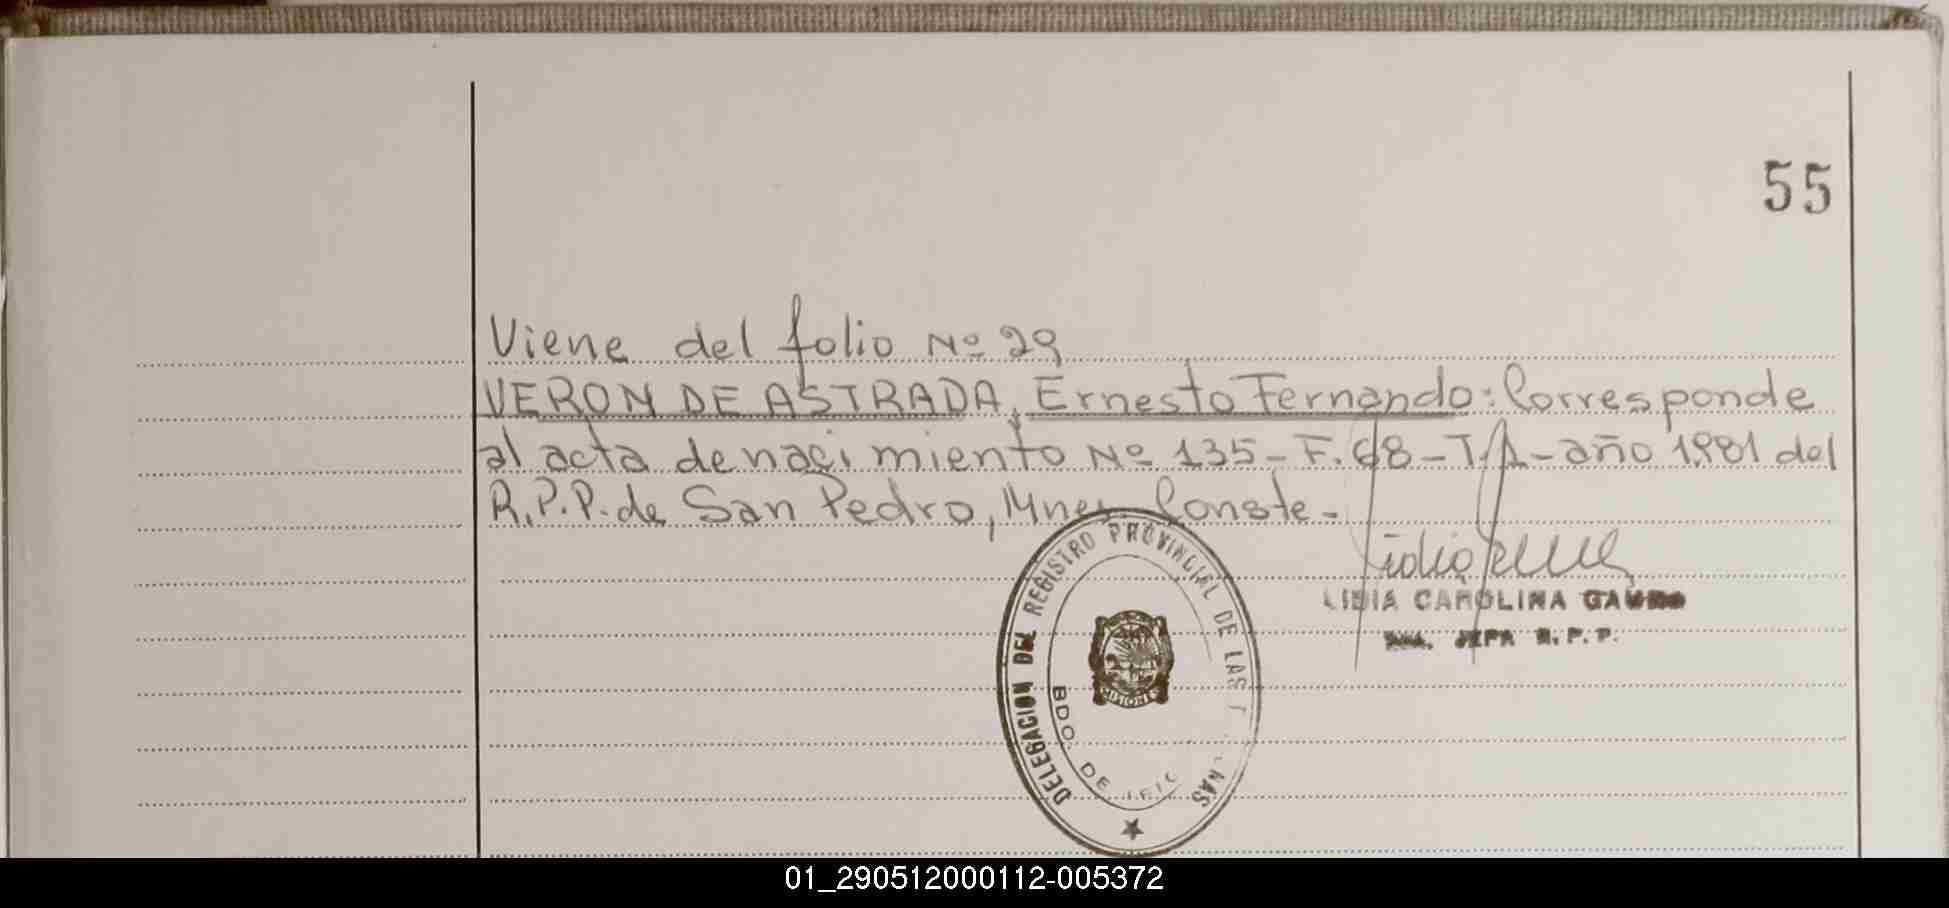 55
Viene del folio Nº 29
VERON DE ASTRADA, Ernesto Fernando: Corresponde
al acta de nacimiento Nº 135 - F. 68 - T. A - año 1981 del
R.P.P. de San Pedro, Mnes. Conste.-
LIDIA CAROLINA
JEFA R.P.P.
DELEGACION DEL REGISTRO PROVINCIAL DE LAS
BDO. DE
MISIONES
01_290512000112-005372